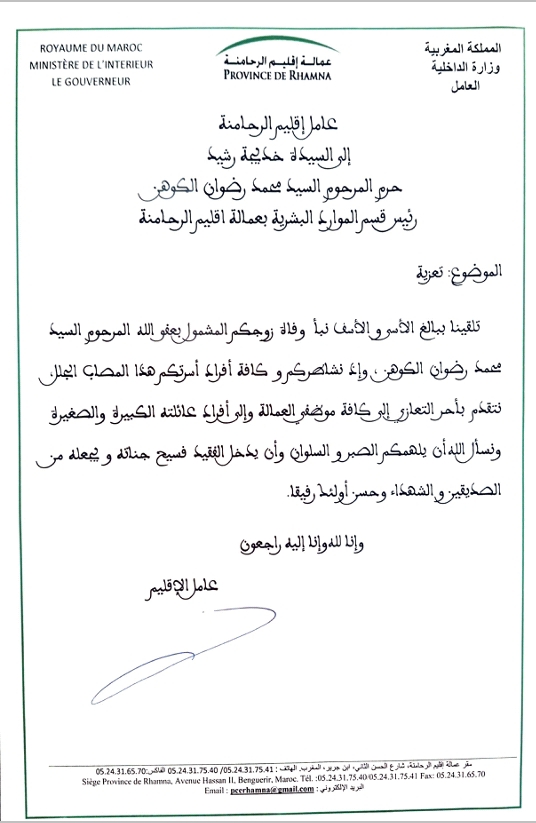 ROYAUME DU MAROC
MINISTÈRE DE L'INTERIEUR
LE GOUVERNEUR
عمالة إقليم الرحامنة
PROVINCE DE RHAMNA
المملكة المغربية
وزارة الداخلية
العامل
عامل إقليم الرحامنة
إلى السيدة خديجة رشيد
حرم المرحوم السيد محمد رضوان الكوهن
رئيس قسم الموارد البشرية بعمالة اقليم الرحامنة
الموضوع: تعزية
تلقينا ببالغ الأسى و الأسف نبأ وفاة زوجكم المشمول بعفو الله المرحوم السيد
محمد رضوان الكوهن ، وإذ نشاطركم و كافة أفراد أسرتكم هذا المصاب الجلل،
نتقدم بأحر التعازي إلى كافة موظفي العمالة وإلى أفراد عائلته الكبيرة والصغيرة
ونسأل الله أن يلهمكم الصبر و السلوان وأن يدخل الفقيد فسيح جناته و يجعله من
الصديقين و الشهداء وحسن أولئك رفيقا.
وإنا لله وإنا إليه راجعون
عامل الإقليم
مقر عمالة إقليم الرحامنة، شارع الحسن الثاني، ابن جرير، المغرب. الهاتف : 05.24.31.75.40/ 05.24.31.75.41 الفاكس:05.24.31.65.70
Siège Province de Rhamna, Avenue Hassan II, Benguerir, Maroc. Tél. :05.24.31.75.40/05.24.31.75.41 Fax: 05.24.31.65.70
Email : pcerhamna@gmail.com : البريد الإلكتروني